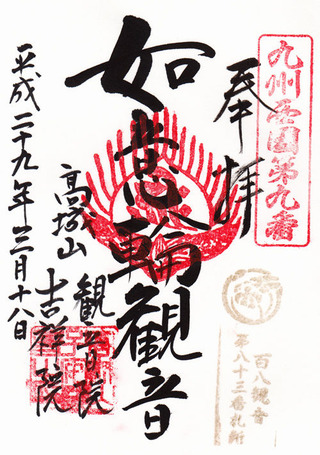 九州西国第九番
奉拝
百八観音
第八十三番札所
如意輪観音
高城山
観音院
吉祥院
平成二十九年三月十八日